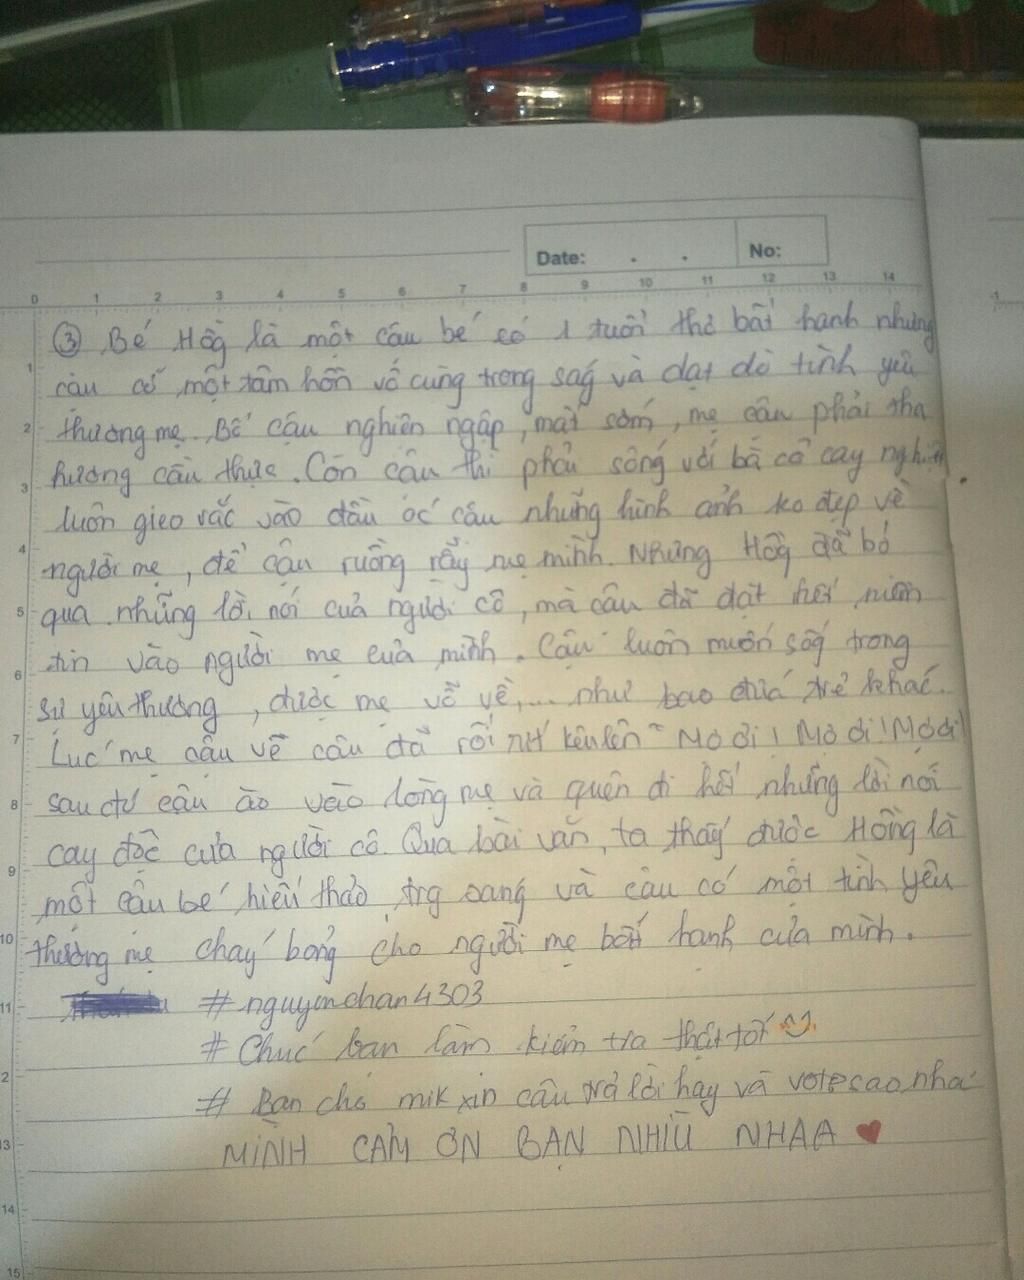 Date: . . No:
0 1 2 3 4 5 6 7 8 9 10 11 12 13 14
③ Bé Hồg là một cậu bé có 1 tuổi thơ bất hạnh nhưng
cậu có một tâm hồn vô cùng trongság và dạt dò tình yêu
thương mẹ. Bố cậu nghiện ngập, mất sớm, mẹ cậu phải tha
hương cầu thực. Còn cậu thì phải sống với bà cô cay nghiệt
luôn gieo rắc vào đầu óc cậu những hình ảnh ko đẹp về
người mẹ, để cậu ruồng rẫy mẹ mình. Nhưng Hồg đã bỏ
qua những lời nói của người cô, mà cậu đã đặt hết niềm
tin vào người mẹ của mình. Cậu luôn muốn sốg trong
sự yêu thương, được mẹ vỗ về,... như bao đứá trẻ khác.
Lúc mẹ cậu về cậu đã rối rít kêu lên " Mợ ơi! Mợ ơi! Mợ ơi!
sau đó cậu ào vào lòng mẹ và quên đi hết những lời nói
cay độc của người cô. Qua bài văn, ta thấy được Hồng là
một cậu bé hiếu thảo, trg sang và cậu có một tình yêu
thương mẹ cháy bỏng cho người mẹ bất hạnh của mình.
#nguyenchan4303
# Chúc bạn làm kiểm tra thật tốt
# Bạn cho mik xin câu trả lời hay và vote 5 sao nha
MÌNH CẢM ƠN BẠN NHIÙ NHAA
1
2
3
4
5
6
7
8
9
10
11
2
13
14
15